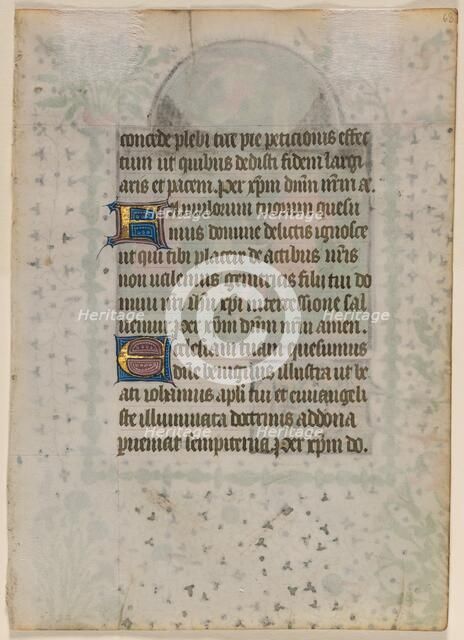 68
concede plebi tue pie peticionis effec
tum ut quibus dedisti fidem largi
aris et pacem. Per xpm dnm nrm ae.
Famulorum tuorum quesu
mus domine delictis ignosce
ut qui tibi placere de actibus nris
non ualemus genitricis filii tui do
mini nri ihu xpi intercessione sal
uemur. Per xpm dnm nrm amen.
Ecclesiam tuam quesumus
dne benignus illustra ut be
ati iohannis apli tui et euuangeli
ste illuminata doctrinis ad dona
perueniat sempiterna. Per xpm do.
Heritage
Heritage
Heritage
Heritage
Heritage
Heritage